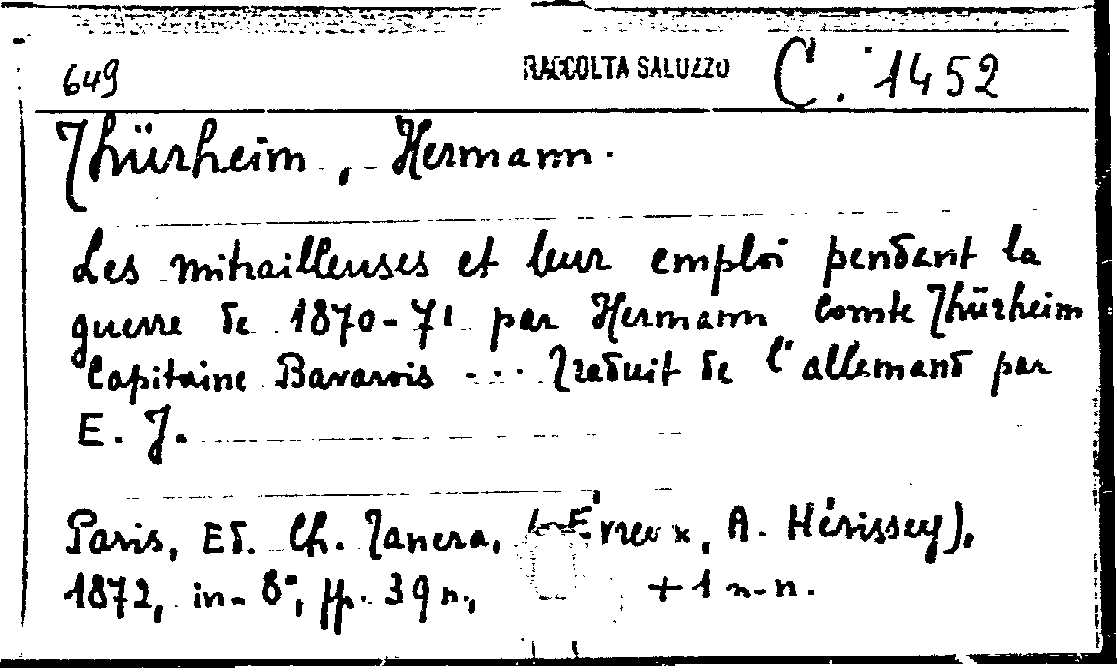 649 RACCOLTA SALUZZO C. 1452
Thürheim, Hermann.
Les mitrailleuses et leur emploi pendant la
guerre de 1870-71 par Hermann comte Thürheim
Capitaine Bavarois ... Traduit de l'allemand par
E. J.
Paris, Ed. Ch. Tanera, (Évreux, A. Hérissey),
1872, in-8°, pp. 39 n., +1 n.n.